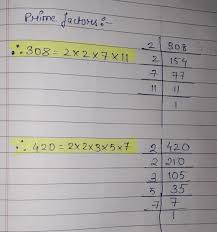 Prime factors:-
∴ 308 = 2×2×7×11
2 308
2 154
7 77
11 11
1
∴ 420 = 2×2×3×5×7
2 420
2 210
105
5 35
7 7
1